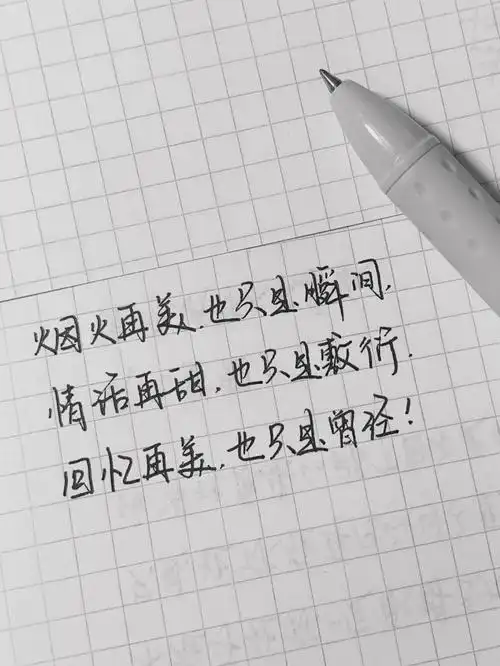 烟火再美,也只是瞬间,
情话再甜,也只是敷衍.
回忆再美,也只是曾经!